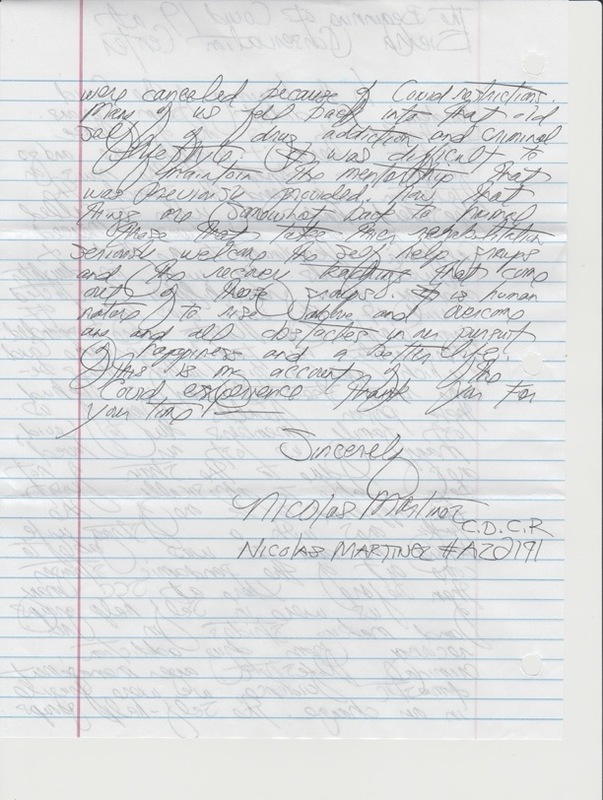 were canceled because of Covid restrictions.
Many of us fell back into that old
self of drug addiction and criminal
lifestyle. It was difficult to
maintain the mentorship that
was previously provided. Now that
things are somewhat back to normal
those that take their rehabilitation
seriously welcome the self help groups
and the recovery teachings that come
out of these groups. It is human
nature to rise above and overcome
any and all obstacles in our pursuit
of happiness and a better life.
This is my account of the
Covid experience thank you for
your time!
Sincerely
Nicolas Martinez
C.D.C.R
NICOLAS MARTINEZ #AZ2191